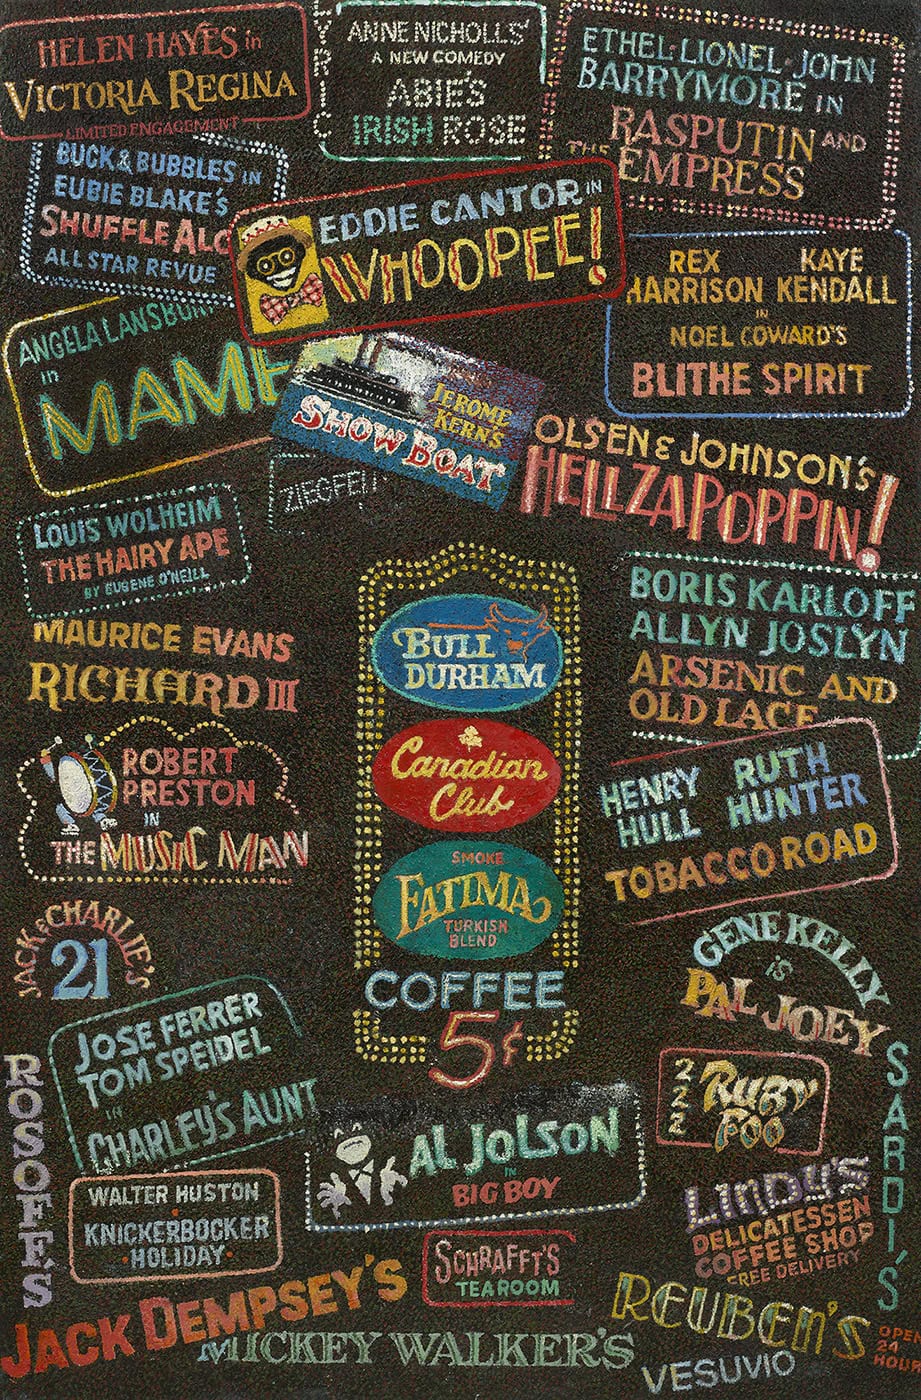 HELEN HAYES in
VICTORIA REGINA
LIMITED ENGAGEMENT
LYRIC
ANNE NICHOLLS'
A NEW COMEDY
ABIE'S
IRISH ROSE
ETHEL·LIONEL·JOHN
BARRYMORE IN
RASPUTIN AND
THE EMPRESS
BUCK & BUBBLES IN
EUBIE BLAKE'S
SHUFFLE ALO
ALL STAR REVUE
EDDIE CANTOR IN
WHOOPEE!
REX KAYE
HARRISON KENDALL
IN
NOEL COWARD'S
BLITHE SPIRIT
ANGELA LANSBURY
IN
MAME
JEROME
KERN'S
SHOW BOAT
ZIEGFEL
OLSEN & JOHNSON'S
HELLZAPOPPIN!
LOUIS WOLHEIM
THE HAIRY APE
BY EUGENE O'NEILL
BORIS KARLOFF
ALLYN JOSLYN
ARSENIC AND
OLD LACE
MAURICE EVANS
RICHARD III
BULL
DURHAM
Canadian
Club
SMOKE
FATIMA
TURKISH
BLEND
COFFEE
5¢
ROBERT
PRESTON
IN
THE MUSIC MAN
HENRY RUTH
HULL HUNTER
TOBACCO ROAD
JACK & CHARLIE'S
21
GENE KELLY
iS
PAL JOEY
JOSE FERRER
TOM SPEIDEL
IN
CHARLEY'S AUNT
222
RUBY
FOO
ROSOFF'S
SARDI'S
AL JOLSON
IN
BIG BOY
WALTER HUSTON
KNICKERBOCKER
·HOLIDAY·
LINDY'S
DELICATESSEN
COFFEE SHOP
FREE DELIVERY
SCHRAFFT'S
TEAROOM
JACK DEMPSEY'S
REUBEN'S
OPEN
24
HOUR
MICKEY WALKER'S
VESUVIO